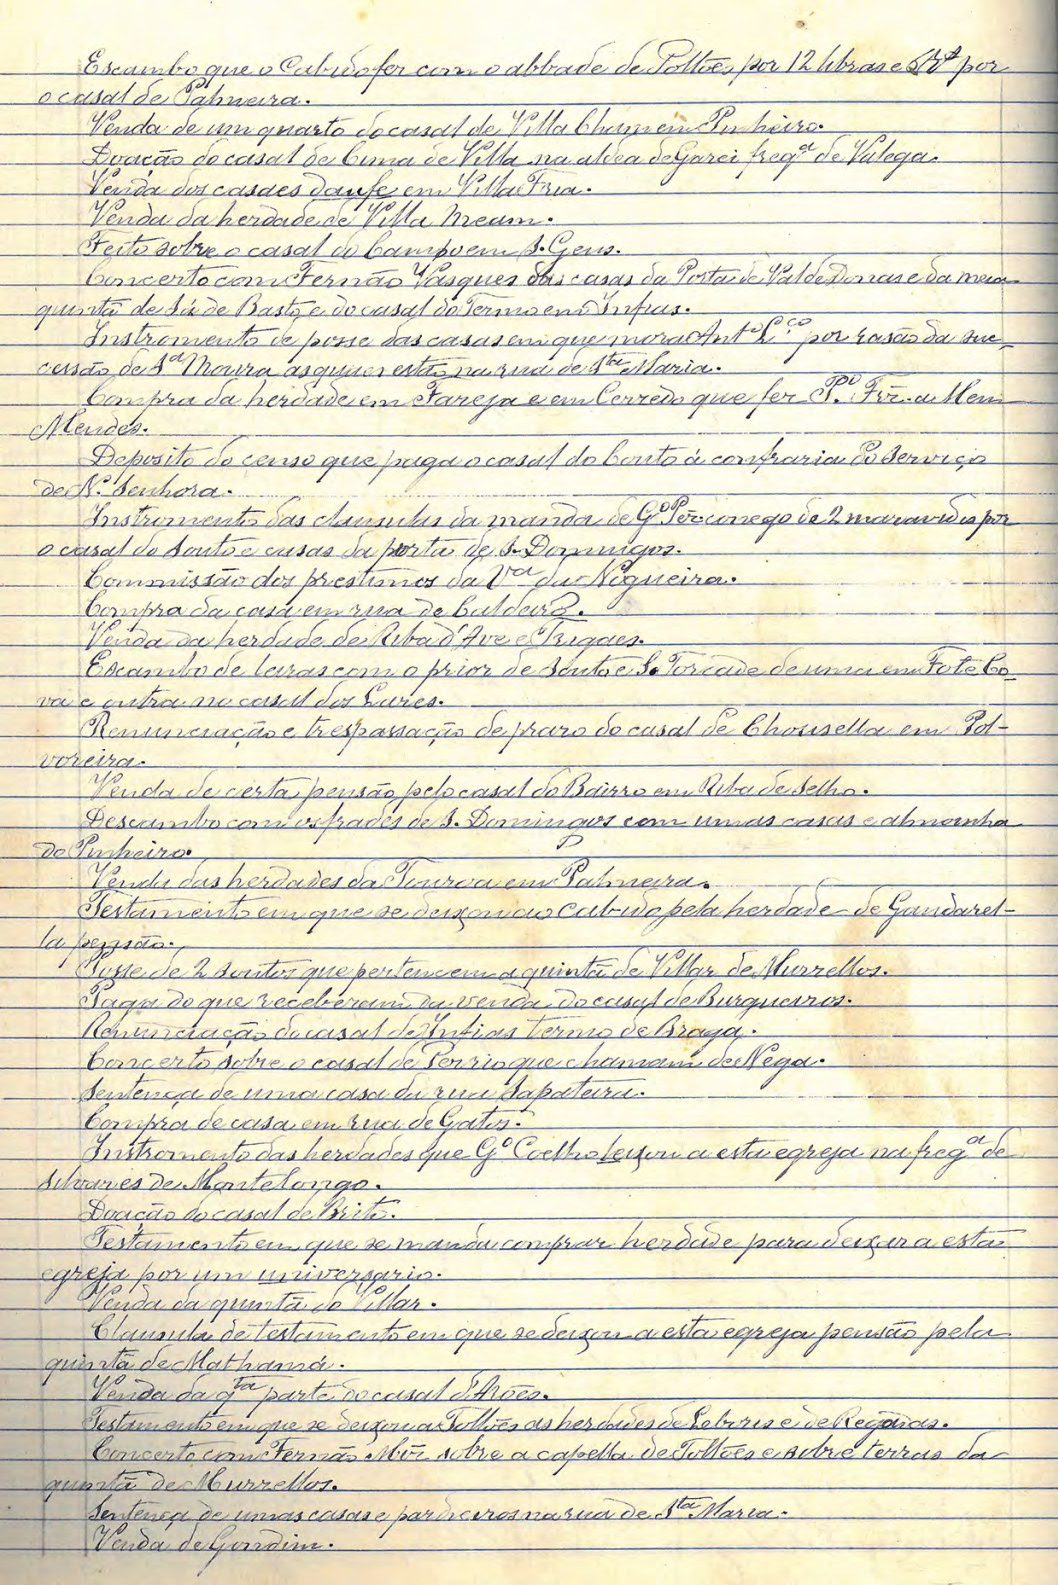 Escambo que o Cabido fez com o abbade de Tolões por 12 libras e por
o casal de Palmeira.
Venda de um quarto do casal de Villa Cham em Pinheiro.
Doação do casal de Cima de Villa na aldea de Garei freg.ª de Valega.
Venda dos casaes daufe em Villa Fria.
Venda da herdade de Villa Meam.
Feito sobre o casal do Campo em S. Gens.
Concerto com Fernão Vasques das casas da Porta de Val de Donas e da meia
quintã de Sá de Basto e do casal do Termo em Infias.
Instromento de posse das casas em que mora Ant.º L.ço por rasão da suc-
cessão de S.ª Moura as quues estão na rua de S.ta Maria.
Compra da herdade em Fareja e em Cerzedo que fez P. Frz. a Mem
Mendes.
Deposito do censo que paga o casal do Couto á confraria do Serviço
de N.ª Senhora.
Instromento das clausulas da manda de G.º Pēr conego de 2 maravidis por
o casal do Souto e casas da porta de S. Domingos.
Commissão dos prestimos da V.ª da Nogueira.
Compra da casa em rua de Caldeirō.
Venda da herdade de Riba d'Ave e Trigaes.
Escambo de leiras com o prior de Souto e S. Torcade de uma em Fote Co-
va e outra no casal dos Lures.
Renunciação e trespassação de prazo do casal de Chousella em Pol-
voreira.
Venda de certa pensão pelo casal do Bairro em Riba de Selho.
Descambo com os frades de S. Domingos com umas casas e almoinha
do Pinheiro.
Venda das herdades da Touroa em Palmeira.
Testamento em que se deixou ao cabido pela herdade de Gandarel-
la pensão.
Posse de 2 soutos que pertencem a quintã de Villar de Murzellos.
Paga do que receberam da venda do casal de Burgueiros.
Renunciação do casal de Infias termo de Braga.
Concerto sobre o casal de Serrio que chamam de Nega.
Sentença de uma casa da rua Sapateira.
Compra de casa em rua de Gatos.
Instromento das herdades que G.º Coelho leixou a esta egreja na freg.ª de
Silvares de Montelongo.
Doação do casal de Brito.
Testamento em que se manda comprar herdade para deixar a esta
egreja por um universario.
Venda da quintã do Villar.
Clausula de testamento em que se deixou a esta egreja pensão pela
quintã de Mathamá.
Venda da q.ta parte do casal d'Arões.
Testamento em que se deixou a Tolões as herdades de Leboris e de Regādas.
Concerto com Fernão Miz sobre a capella de Tolões e sobre terras da
quintã de Murzellos.
Sentença de umas casas e pardieiros na rua de S.ta Maria.
Venda de Gondim.